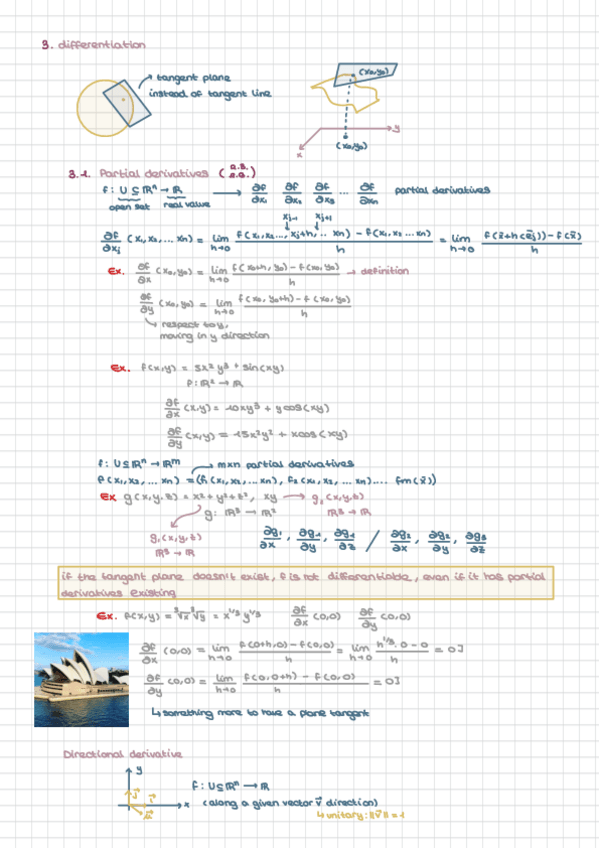 3. differentiation
tangent plane
instead of tangent line
(x₀,y₀)
y
x
(x₀,y₀)
3.1. Partial derivatives
f: U ⊆ ℝⁿ → ℝ → ∂f/∂x₁ ∂f/∂x₂ ∂f/∂x₃ ... ∂f/∂xₙ partial derivatives
open set real value
xj-1 xj+1
∂f/∂xj (x₁,x₂,... xn) = lim h→0 f(x₁,x₂..., xj+h, .. xn) - f(x₁,x₂ ... xn) / h = lim h→0 f(x̄+h(ēj)) - f(x̄) / h
Ex. ∂f/∂x (x₀,y₀) = lim h→0 f(x₀+h, y₀) - f(x₀,y₀) / h → definition
∂f/∂y (x₀,y₀) = lim h→0 f(x₀, y₀+h) - f(x₀,y₀) / h
↳ respect to y,
moving in y direction
Ex. f(x,y) = 5x² y³ + sin(xy)
f: ℝ² → ℝ
∂f/∂x (x,y) = 10xy³ + y cos(xy)
∂f/∂y (x,y) = 15x²y² + x cos(xy)
f: U ⊆ ℝⁿ → ℝᵐ → mxn partial derivatives
f(x₁,x₂, ... xn) = (f₁(x₁,x₂,... xn), f₂(x₁,x₂, ... xn).... fm(x̄))
Ex g(x,y,z) = x²+y²+z², xy → g₂(x,y,z)
g: ℝ³ → ℝ² ℝ³ → ℝ
g₁(x,y,z) ∂g₁/∂x , ∂g₁/∂y , ∂g₁/∂z / ∂g₂/∂x , ∂g₂/∂y , ∂g₂/∂z
ℝ³ → ℝ
if the tangent plane doesn't exist, f is not differentiable, even if it has partial
derivatives existing
Ex. f(x,y) = ³√x ³√y = x^1/3 y^1/3 ∂f/∂x (0,0) ∂f/∂y (0,0)
∂f/∂x (0,0) = lim h→0 f(0+h,0) - f(0,0) / h = lim h→0 h^1/3 · 0 - 0 / h = 0∃
∂f/∂y (0,0) = lim h→0 f(0,0+h) - f(0,0) / h = 0∃
↳ something more to have a plane tangent
Directional derivative
y
f: U ⊆ ℝⁿ → ℝ
x (along a given vector v̄ direction)
↳ unitary: ||v̄|| = 1